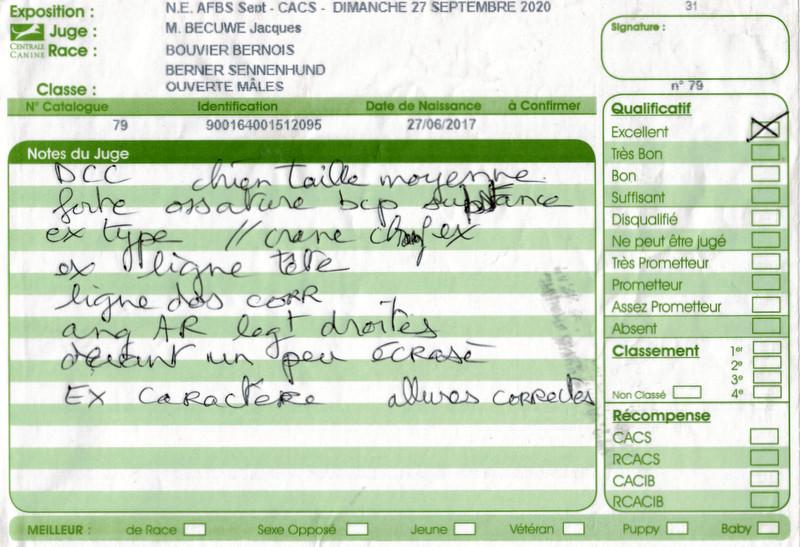 Exposition : N.E. AFBS Sept - CACS - DIMANCHE 27 SEPTEMBRE 2020 31
Juge : M. BECUWE Jacques
CENTRALE CANINE
Race : BOUVIER BERNOIS
BERNER SENNENHUND
Classe : OUVERTE MÂLES
Signature :
n° 79
N° Catalogue Identification Date de Naissance à Confirmer
79 900164001512095 27/06/2017
Notes du Juge
DCC chien taille moyenne
forte ossature bcp substance
ex type // crane ex
ex ligne tête
ligne dos CORR
ang AR legt droites
devant un peu ÉCRASÉ
EX CARACtÈRE allures CORRectes
Qualificatif
Excellent
Très Bon
Bon
Suffisant
Disqualifié
Ne peut être jugé
Très Prometteur
Prometteur
Assez Prometteur
Absent
Classement 1er
2e
3e
Non Classé 4e
Récompense
CACS
RCACS
CACIB
RCACIB
MEILLEUR : de Race Sexe Opposé Jeune Vétéran Puppy Baby